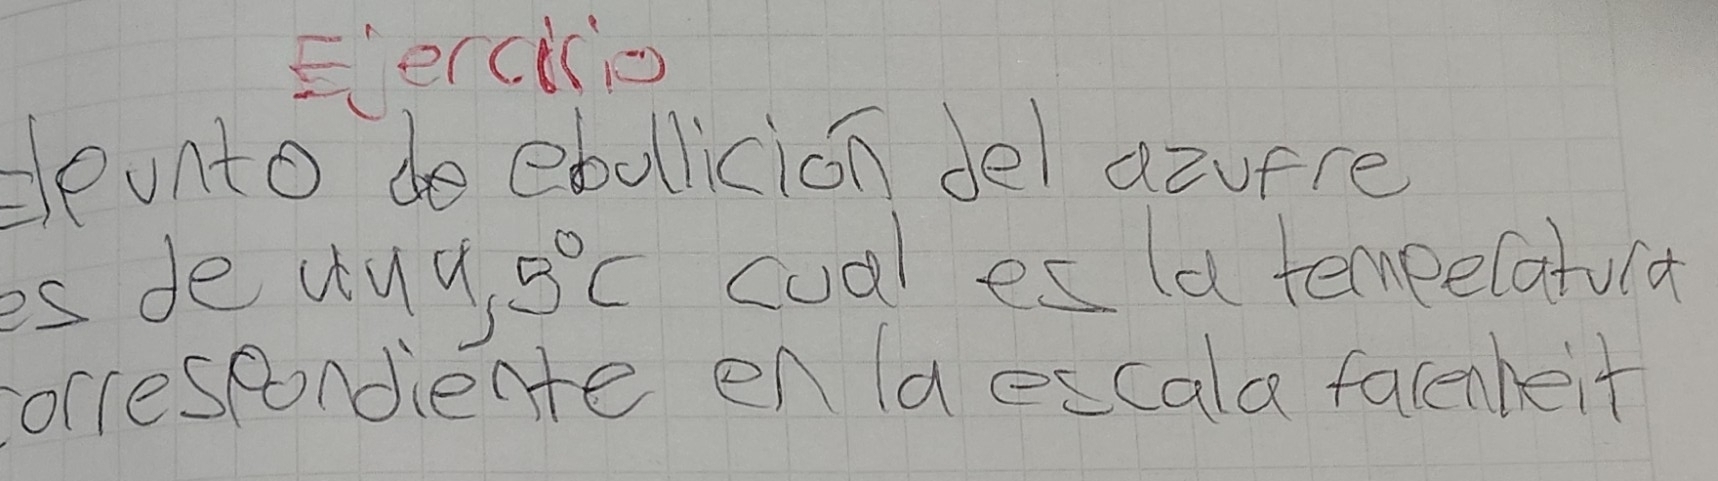 Ejercicio
El punto de ebullición del azufre
es de 444,5°c cual es la temperatura
correspondiente en la escala farenheit